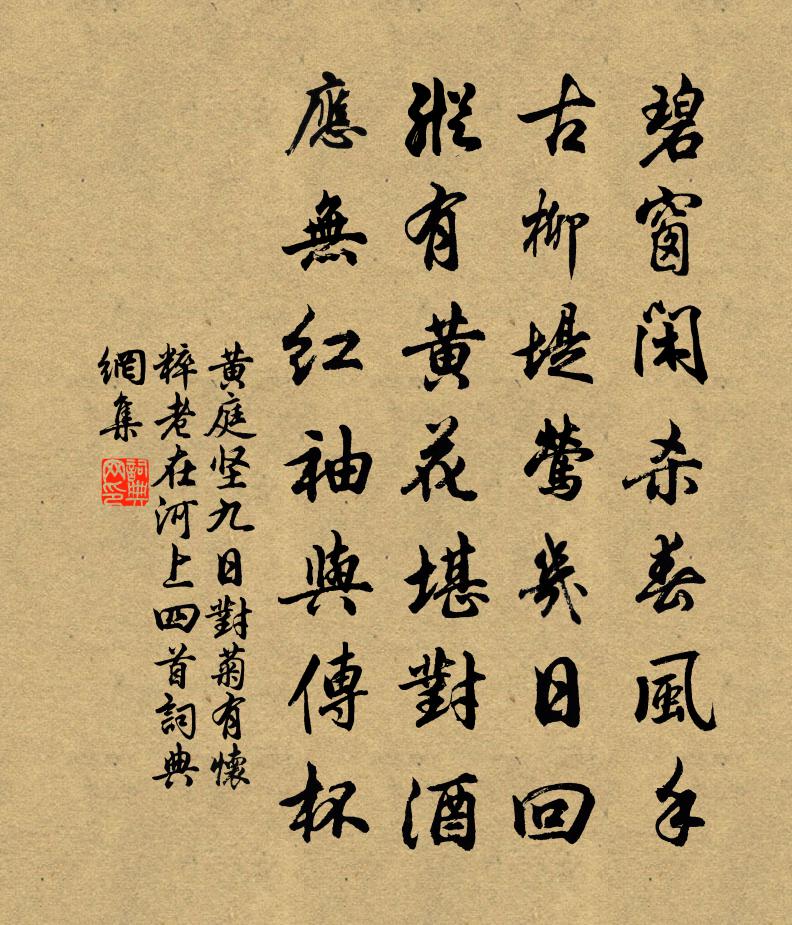 碧窗閑殺春風手
古柳堤鶯幾日回
縱有黄花堪對酒
應無紅袖與傳杯
黄庭坚九日對菊有懷
粹老在河上四首詞典
網集
詞典
网印